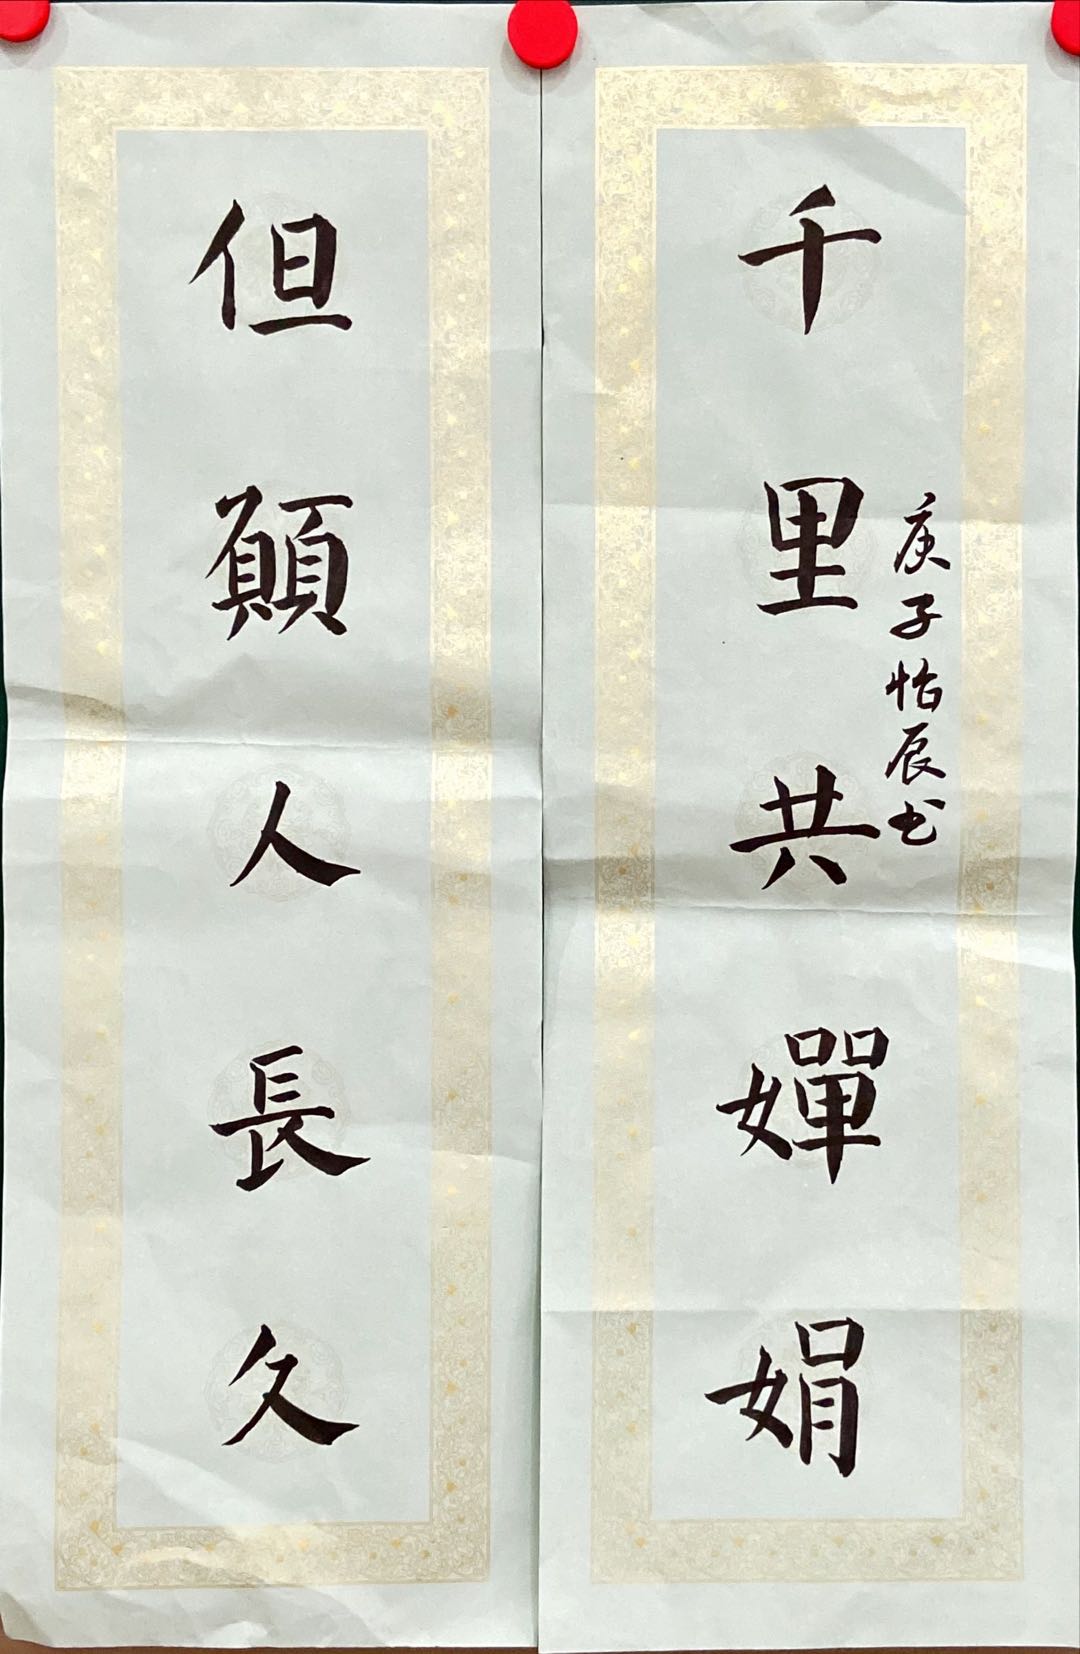 但願人長久
千里共嬋娟
庚子怡辰书